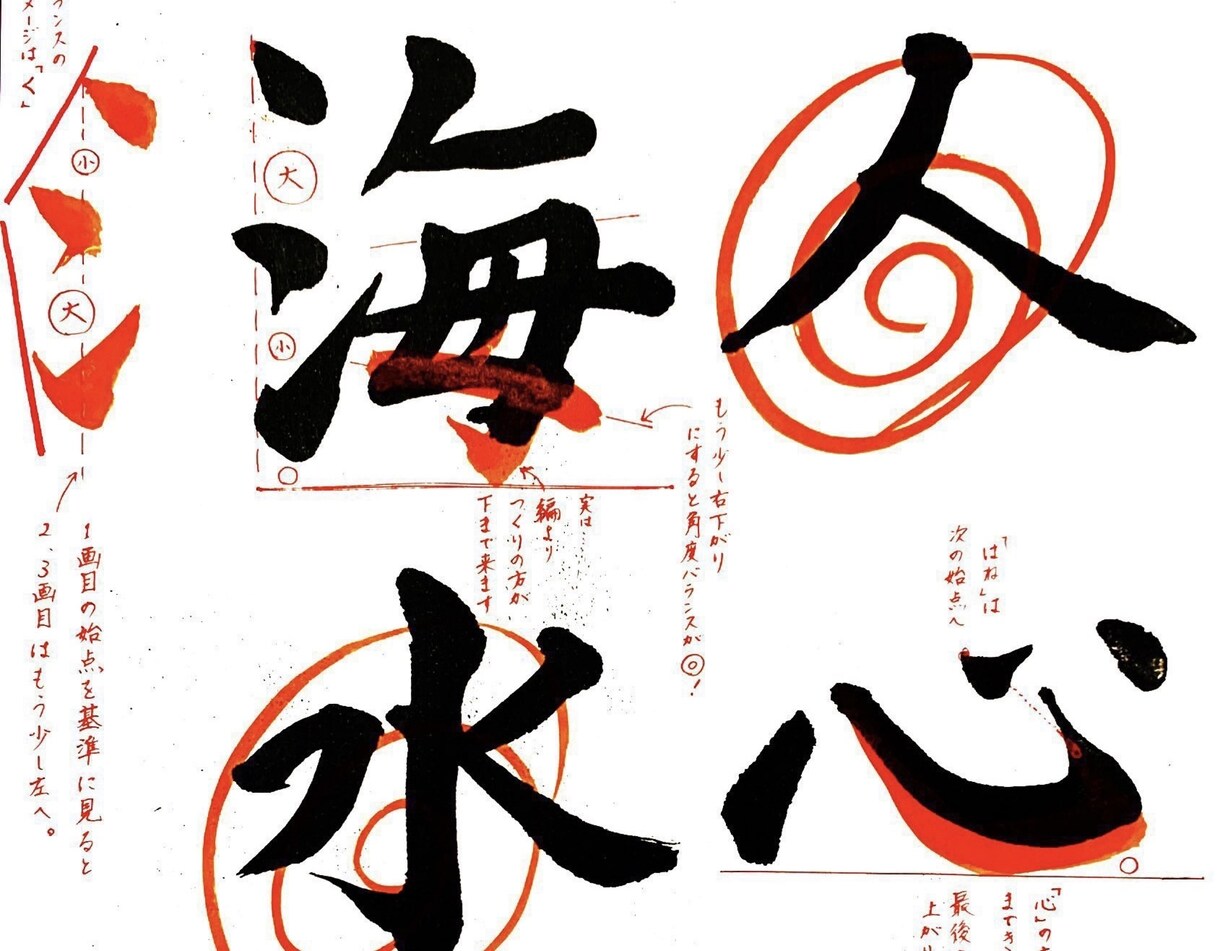 人
海
大
小
もう少し右下がり
にすると角度バランスが◎!
実は
編より
つくりの方が
下まで来ます
ランスの
メージは「く」
小
大
1画目の始点を基準に見ると
2、3画目はもう少し左へ。
「はね」は
次の始点へ
心
水
「心」の
まで
最後
上が